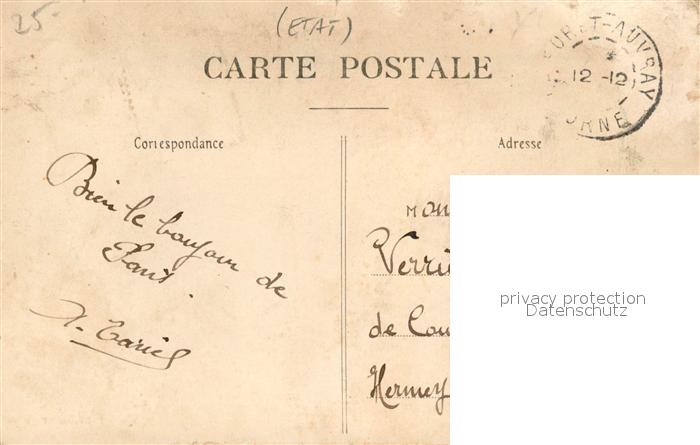 25
(ETAT)
CARTE POSTALE
12-12
ORNE
Correspondance
Adresse
Bien le bonjour de
Paris.
Mon
Verri
de Cou
Hermey
privacy protection
Datenschutz